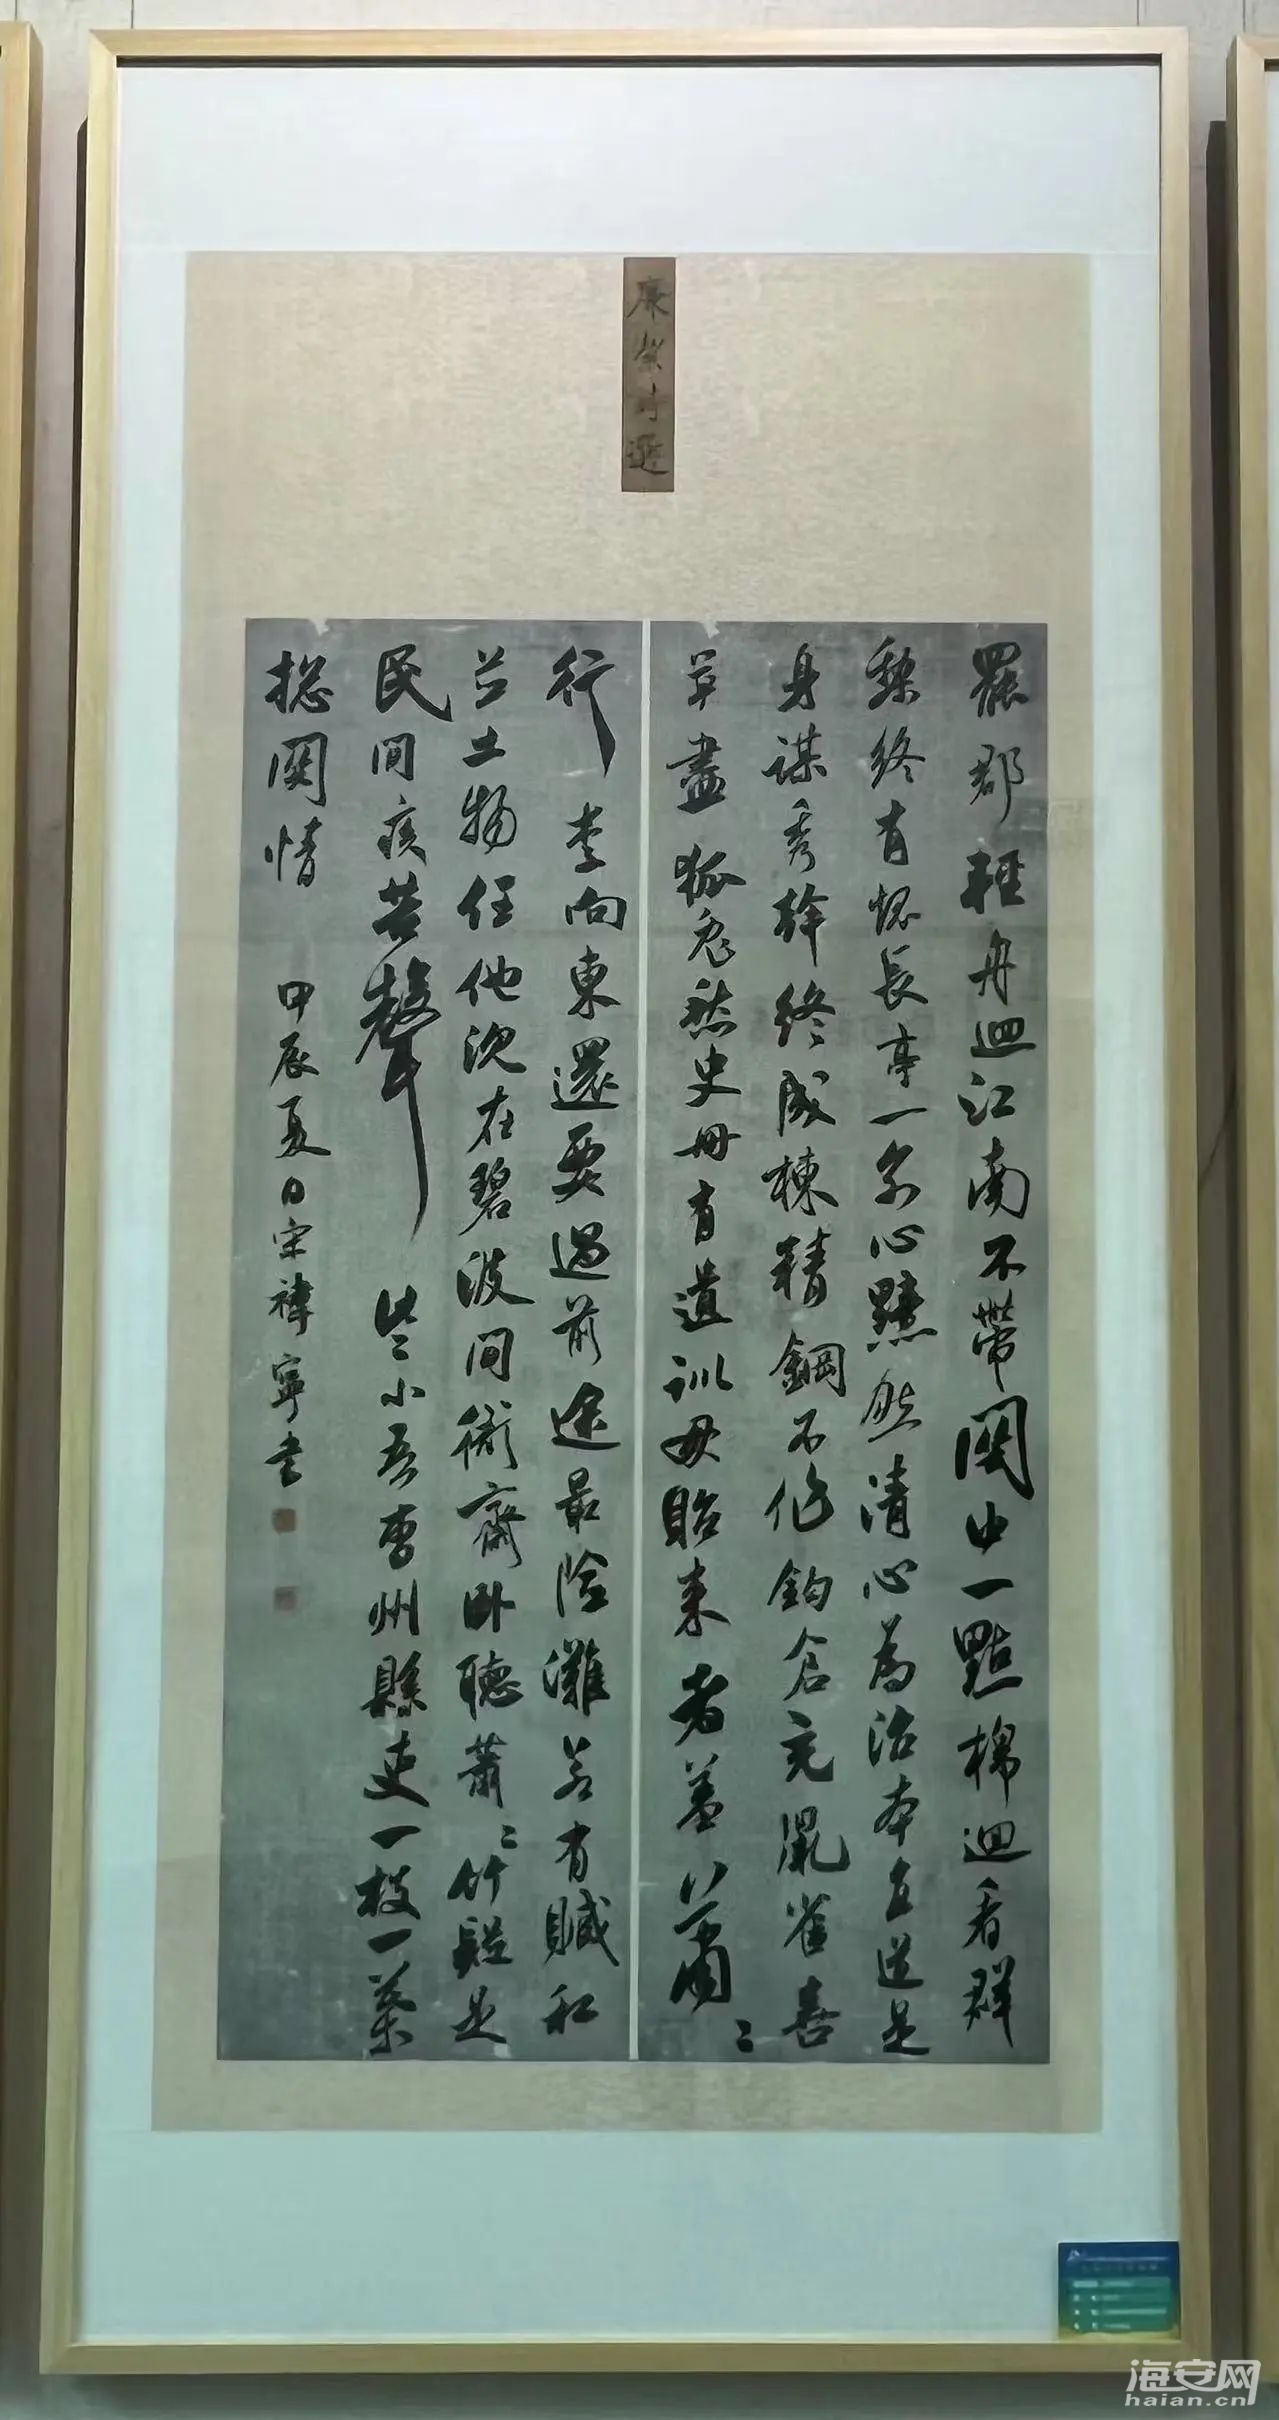 廉絜詩選
罷郡輕舟迴江南不帶關中一點棉迴看群
黎終有愧長亭一別心黯然清心為治本直道是
身謀秀幹終成棟精鋼不作鈎倉充鼠雀喜
草盡狐兔愁史冊有遺訓毋貽來者羞蕭〻
行李向東還要過前途最險灘若有贓私
並土物任他沉在碧波間衙齋臥聽蕭〻竹疑是
民間疾苦聲些小吾曹州縣吏一枝一葉
捴關情 甲辰夏日宋禕寧書
海安网
haian.cn